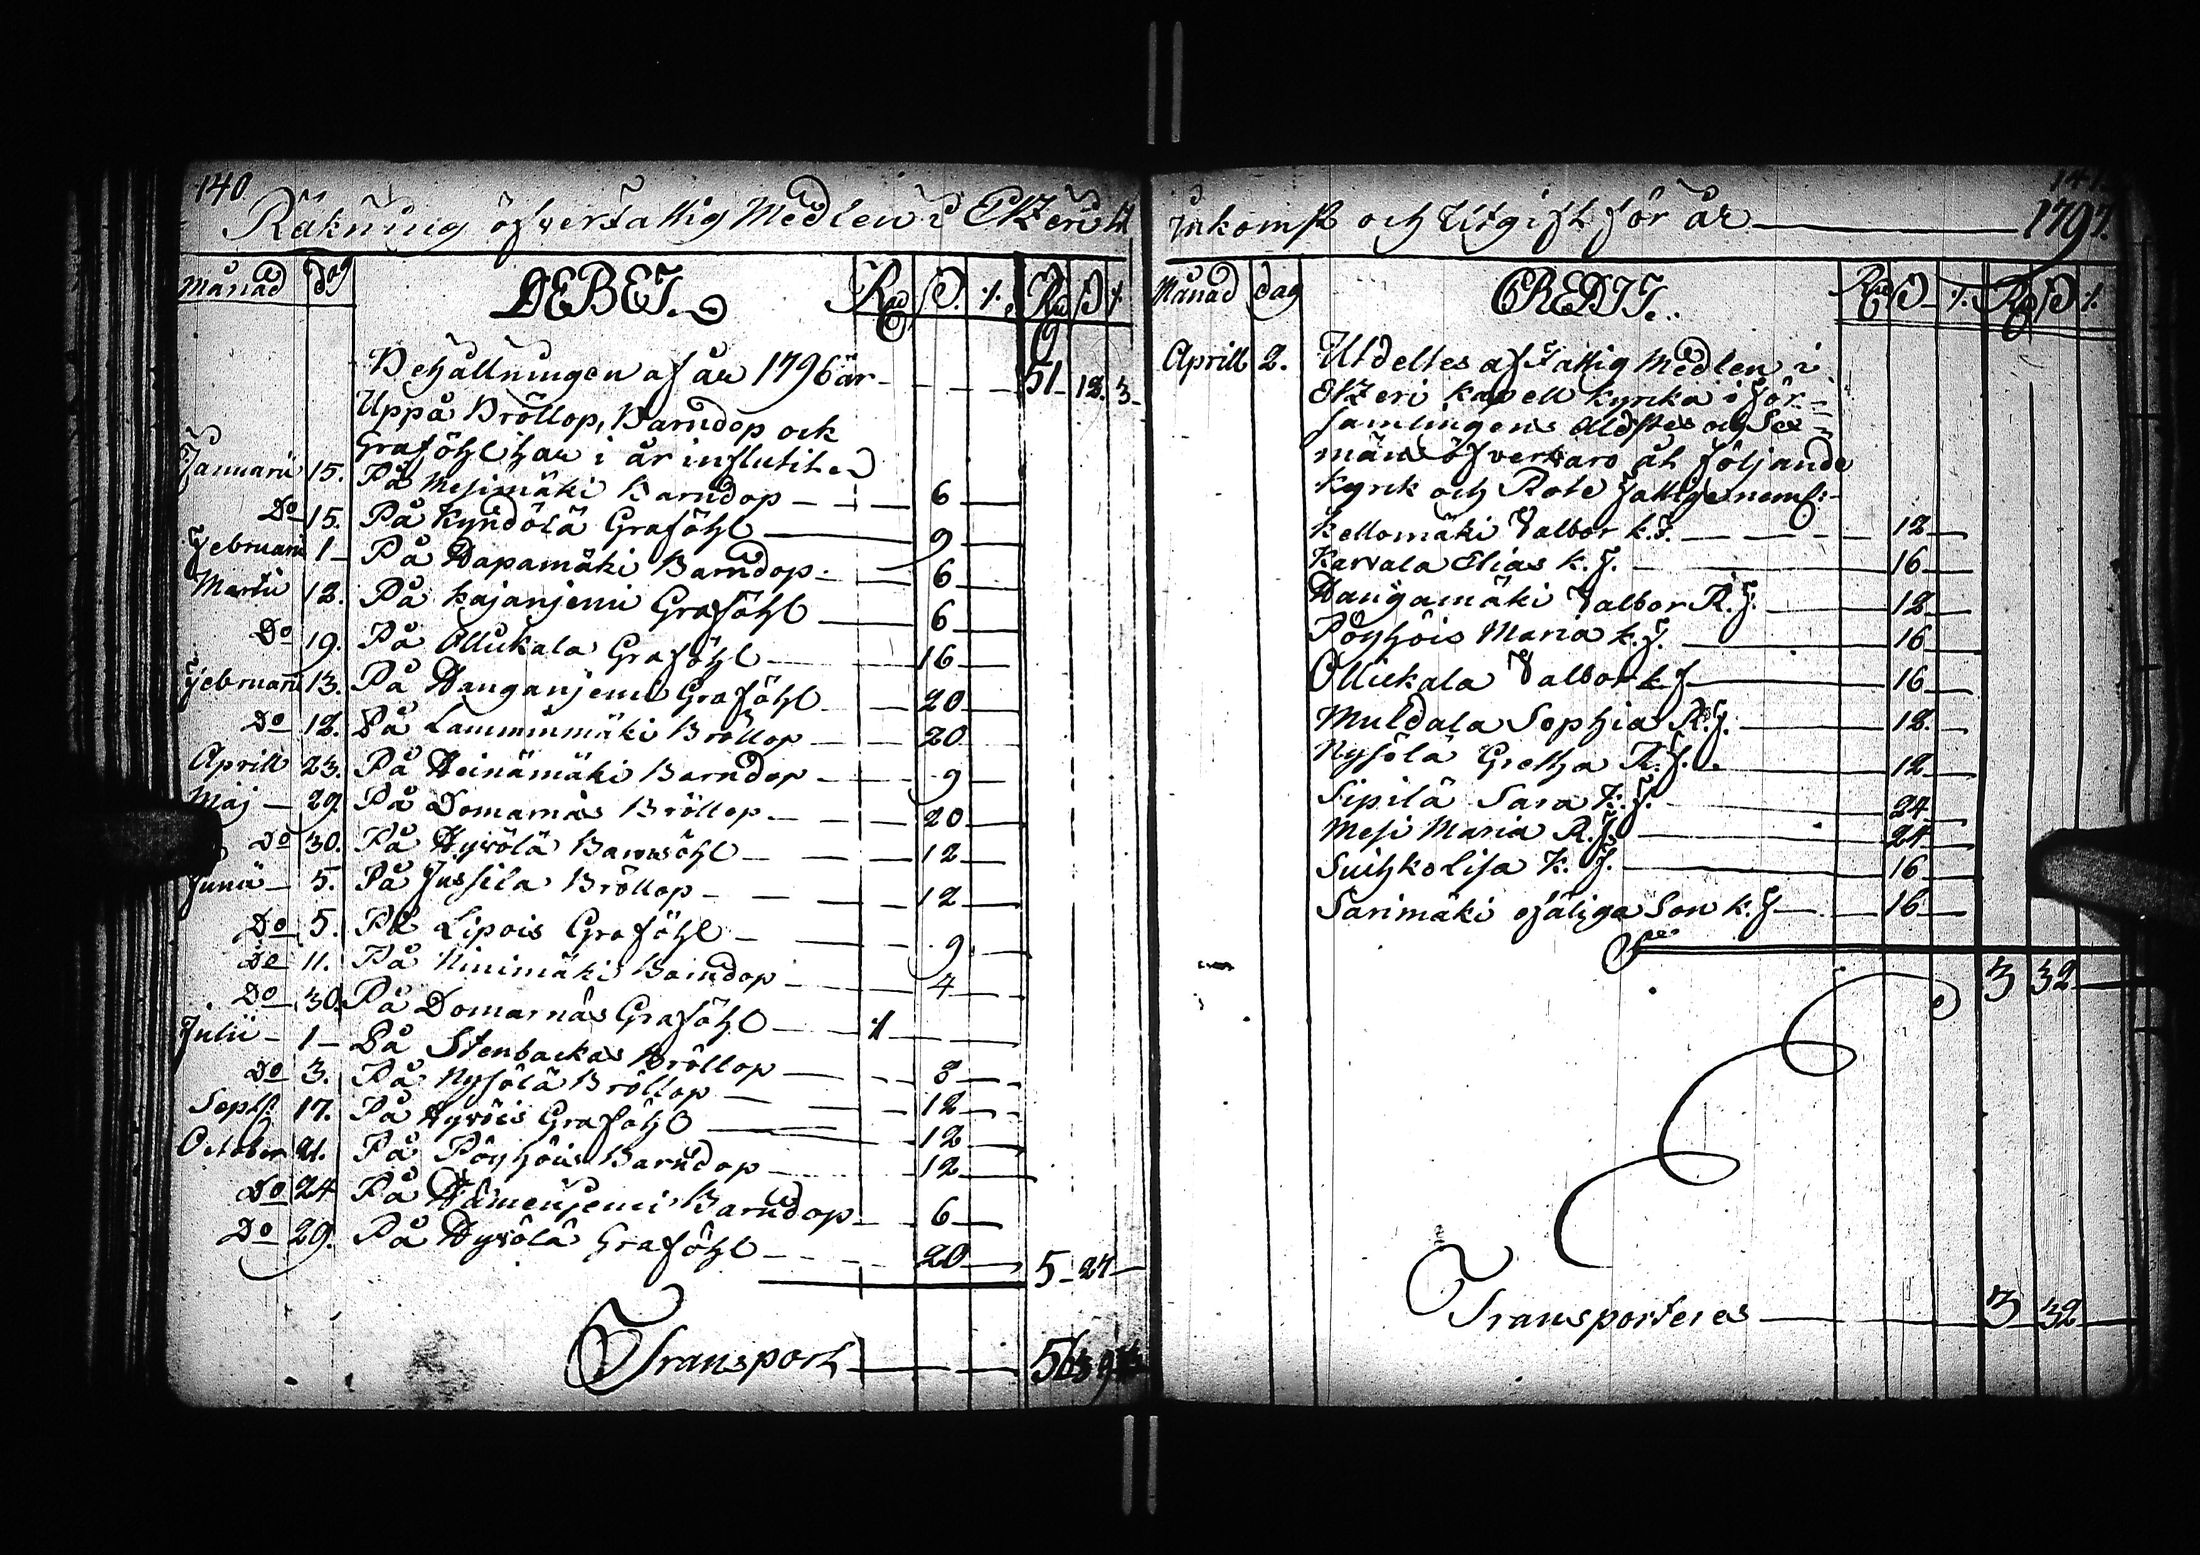 140.
Räkning öfver fattig Medlen i Etzeri til
Månad dag DEBET. Rd S. /. Rd S /.
Behållningen af år 1796 är - - - 51 - 12. 3 -
Uppå Bröllop, Barndop ock
Graföhl har i år influtit.
Januarii 15. På Mesimäki Barndop - - 6
Do 15. På Kyndölä Graföhl 9
Februarii 1 - På Hapamäki Barndop - 6
Martii 12. På Kajanjemi Graföhl 6
Do 19. På Ollikala Graföhl 16
Februarii 13. På Hanganjemi Graföhl 20
Do 12. På Lamminmäki Bröllop 20
Aprill 23. På Heinämäki Barndop 9
Maj - 29. På Domarnäs Bröllop 20
Do 30. På Hyvölä Barnsöhl 12
Junii - 5. På Jussila Bröllop - 12
Do 5. På Lipois Graföhl 9
Do 11. På Ninimäki Barndop 4
Do 30. På Domarnäs Graföhl 1
Julii - 1 - På Stenbackas Bröllop 8
Do 3. På Nysölä Bröllop 12
Septb. 17. På Hyvöis Graföhl 12
October 21. På Pöyhöis Barndop 12
Do 24 På Hämenjemi Barndop 6
Do 29. På Hyvölä Graföhl 20 5 - 27
Transport 56 39 3
141.
Inkomst och Utgift för år 1797.
Månad dag CREDIT. Rd S /. Rd S /.
Aprill 2. Utdeltes af Fattig Medlen i
Etzeri kapell kyrka i för=
samlingens äldstes och Sex=
mäns öfvervaro åt följande
Kyrk och Rote fattige neml:
Kellomäki Valbor k. f. 12
Karvala Elias k. f. 16
Hangamäki Valbor R. f. 12
Pöyhöis Maria k. f. 16
Ollikala Valbor k. f 16
Muldala Sophia R. f. 12.
Nysölä Gretha R. f. 12
Sipilä Sara k. f. 24
Mesi Maria R. f. 24
Suihko Lisa K. f. 16
Sarimäki osäliga Son k. f 16
3 32
Transporteres 3 32